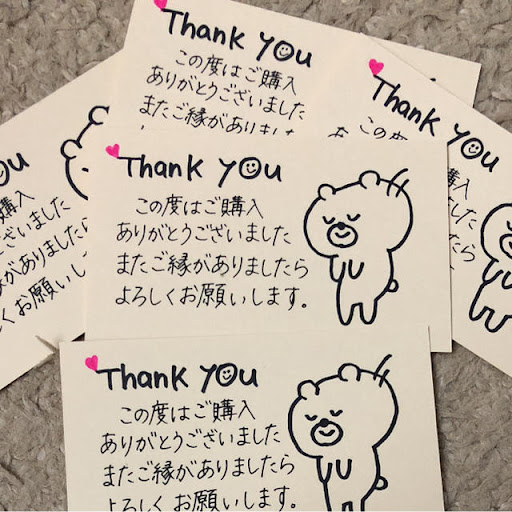 Thank you
この度はご購入
ありがとうございました
またご縁がありました
Thank you
この度
you
購入
ございました
がありましたら
くお願いします
Thank you
この度はご購入
ありがとうございました
またご縁がありましたら
よろしくお願いします。
Thank you
この度はご購入
ありがとうございました
またご縁がありましたら
よろしくお願いします。